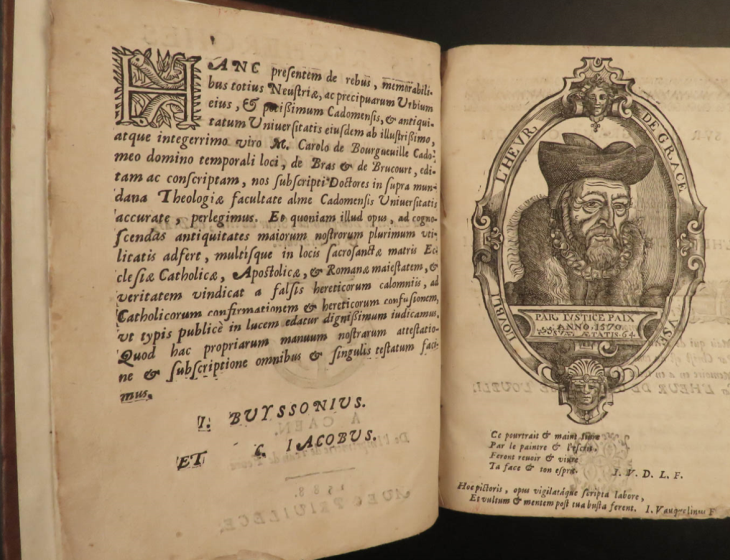 HANC presentem de rebus, memorabili-
bus totius Neustriæ, ac precipuarum Vrbium
eius, & potissimum Cadomensis, & antiqui-
tatum Vniuersitatis eiusdem ab illustrissimo,
atque integerrimo viro M. Carolo de Bourgueuille Cado
meo domino temporali loci, de Bras & de Brucourt, edi-
tam ac conscriptam, nos subscripti Doctores in supra mun-
dana Theologiæ facultate alme Cadomensis Vniuersitatis
accurate, perlegimus. Et quoniam illud opus, ad cogno-
scendas antiquitates maiorum nostrorum plurimum vti-
litatis adfert, multisque in locis sacrosanctæ matris Ec
clesiæ Catholicæ, Apostolicæ, & Romanæ maiestatem, &
veritatem vindicat a falsis hereticorum calomniis, ad
Catholicorum confirmationem & hereticorum confusionem,
vt typis publicè in lucem edatur dignissimum iudicamus.
Quod hac propriarum manuum nostrarum attestatio-
ne & subscriptione omnibus & singulis testatum faci-
mus.
I. BVYSSONIVS.
ET IACOBVS.
A CAEN,
1588
AVEC PRIVILEGE.
L'HEVR DE GRACE
VSE L'OVBLI
PAR IVSTICE PAIX
ANNO. 1570
ÆTATIS. 64
Ce pourtrait & maint liure
Par le paintre & l'escrit
Feront reuoir & viure
Ta face & ton esprit.
I. V. D. L. F.
Hoc pictoris, opus vigilatáque scripta labore,
Et vultum & mentem post tua busta ferent. I. Vauquelinus F.